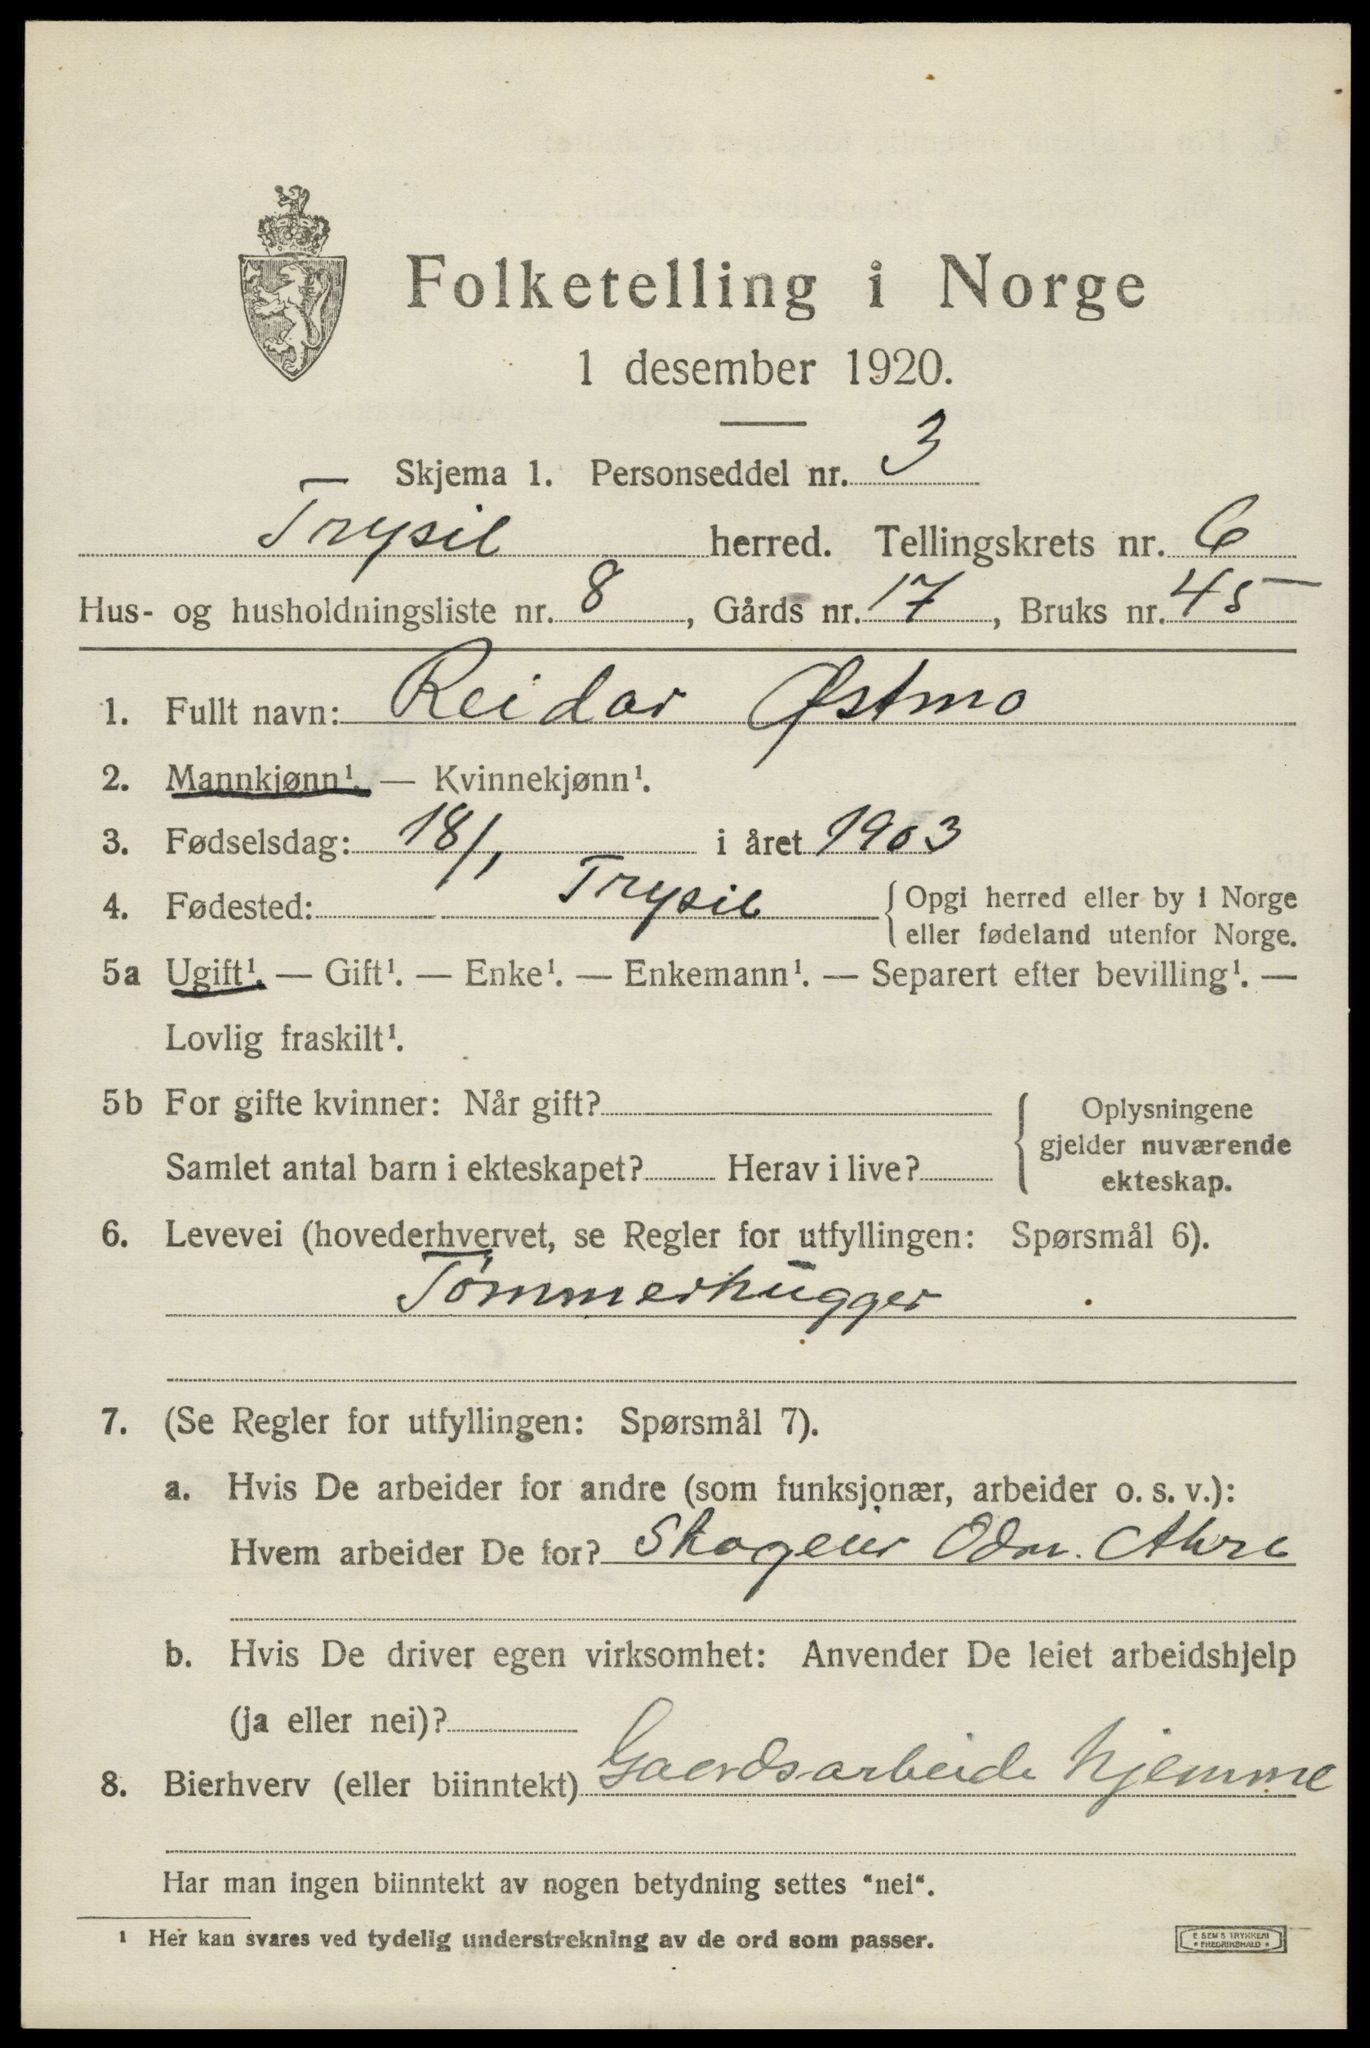 Folketelling i Norge
1 desember 1920.
Skjema 1. Personseddel nr. 3
Trysil herred. Tellingskrets nr. 6
Hus- og husholdningsliste nr. 8, Gårds nr. 17, Bruks nr. 45
1. Fullt navn: Reidar Østmo
2. Mannkjønn¹. — Kvinnekjønn¹.
3. Fødselsdag: 18/1 i året 1903
4. Fødested: Trysil {Opgi herred eller by i Norge
eller fødeland utenfor Norge.
5a Ugift¹. — Gift¹. — Enke¹. — Enkemann¹. — Separert efter bevilling¹. —
Lovlig fraskilt¹.
5b For gifte kvinner: Når gift?
Samlet antal barn i ekteskapet? Herav i live?
{Oplysningene
gjelder nuværende
ekteskap.
6. Levevei (hovederhvervet, se Regler for utfyllingen: Spørsmål 6).
Tømmerhugger
7. (Se Regler for utfyllingen: Spørsmål 7).
a. Hvis De arbeider for andre (som funksjonær, arbeider o. s. v.):
Hvem arbeider De for? Skogeier Odm.
b. Hvis De driver egen virksomhet: Anvender De leiet arbeidshjelp
(ja eller nei)?
8. Bierhverv (eller biinntekt) Gaardsarbeide hjemme
Har man ingen biinntekt av nogen betydning settes "nei".
¹ Her kan svares ved tydelig understrekning av de ord som passer.
E. SEM'S TRYKKERI
FREDRIKSHALD